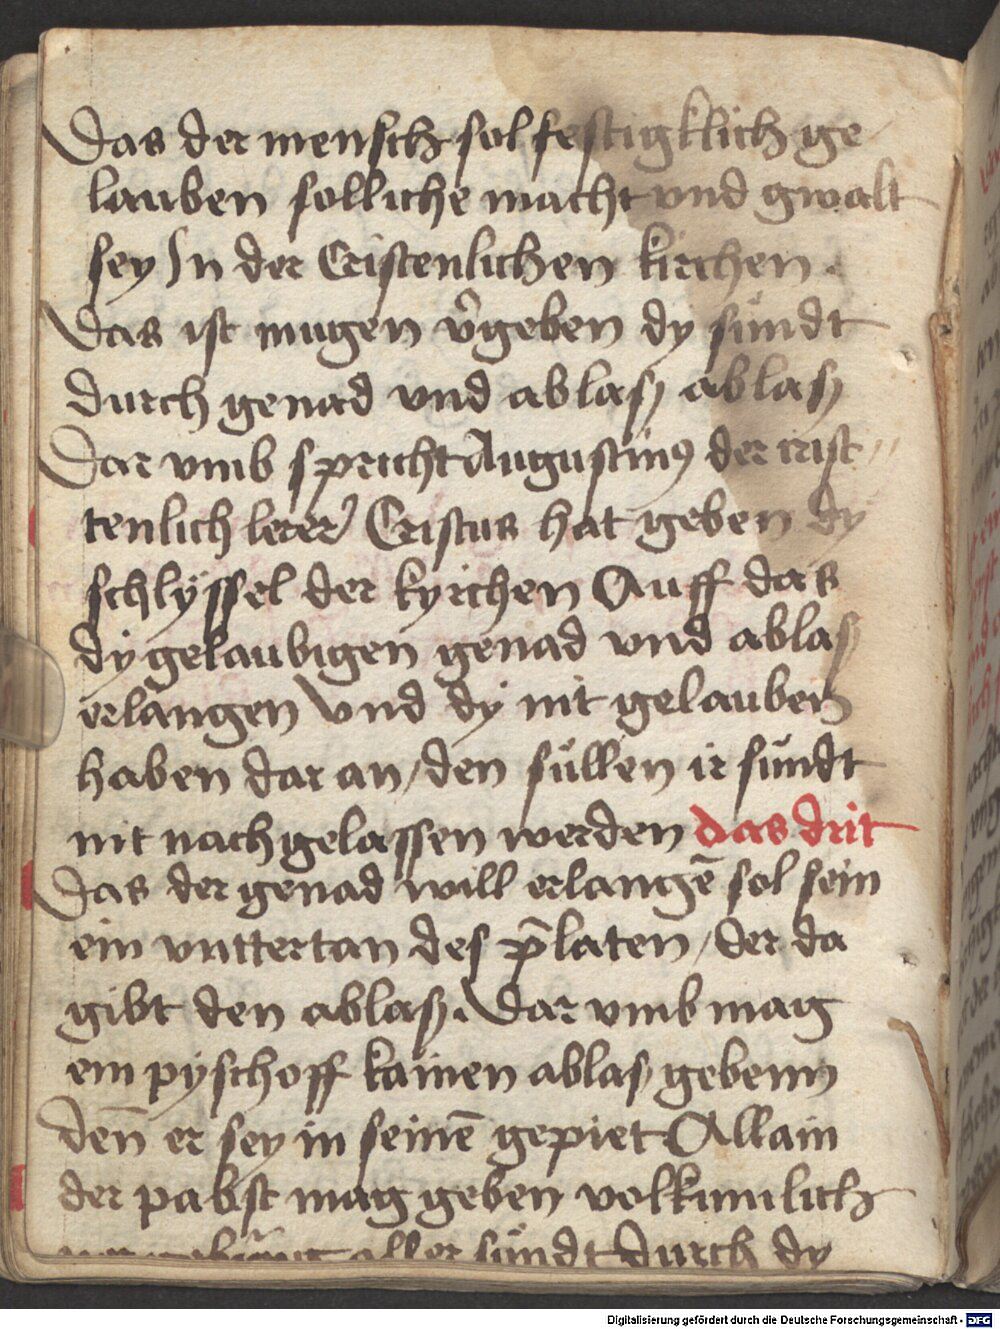 Das der mensch sol festigklich ge
lauben solliche macht vnd gwalt
sey In der Cristenlichen kirchen .
Das ist mugen v̄geben dy sündt
durch genad vnd ablasz ablasz
Dar vmb spricht Augustinꝰ der crist
tenlich lerer Cristus hat geben dy
schlÿssel der kyrchen Auff das
dÿ gelaubigen genad vnd ablasz
erlangen Vnd dÿ nit gelauben
haben dar an / den süllen ir sündt
nit nachgelassen werden das drit
Das der genad will erlangē sol sein
ein vnttertan des p̄laten / der da
gibt den ablasz . Dar vmb mag
ein pÿschoff kainen ablasz gebenn
den̄ er sey in seinē gepiet Allain
der pabst mag geben volkumlich
aller sündt durch dy
Digitalisierung gefördert durch die Deutsche Forschungsgemeinschaft - DFG